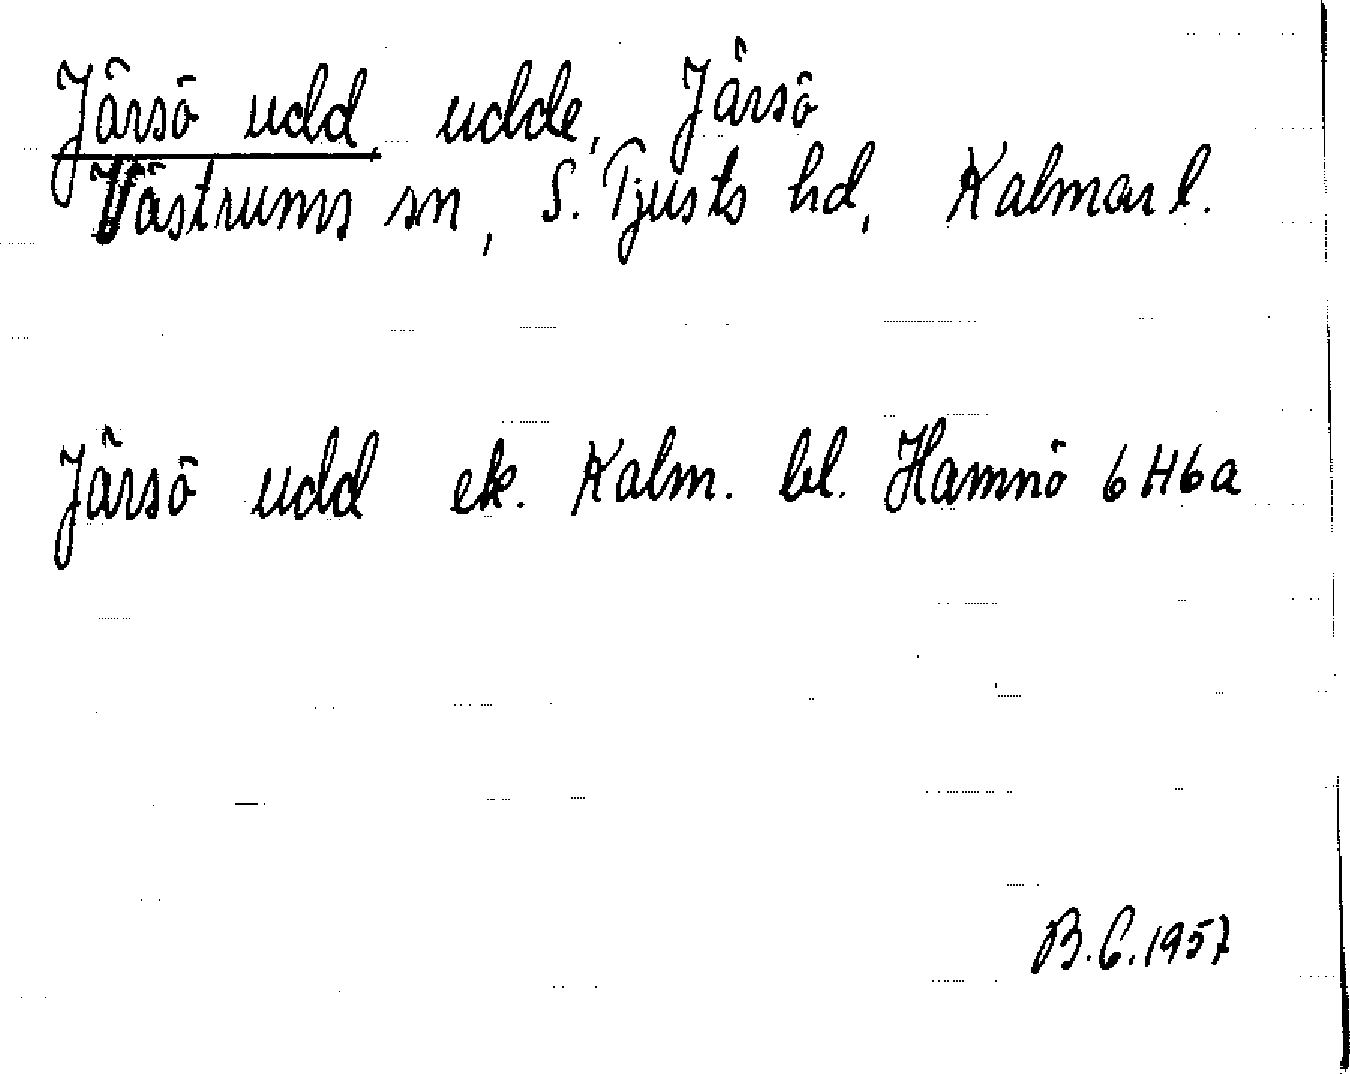 Järsö udd, udde, Järsö
Västrums sn, S. Tjusts hd, Kalmar l.
Järsö udd ek. Kalm. bl. Hamnö 6H6a
B.G.1957